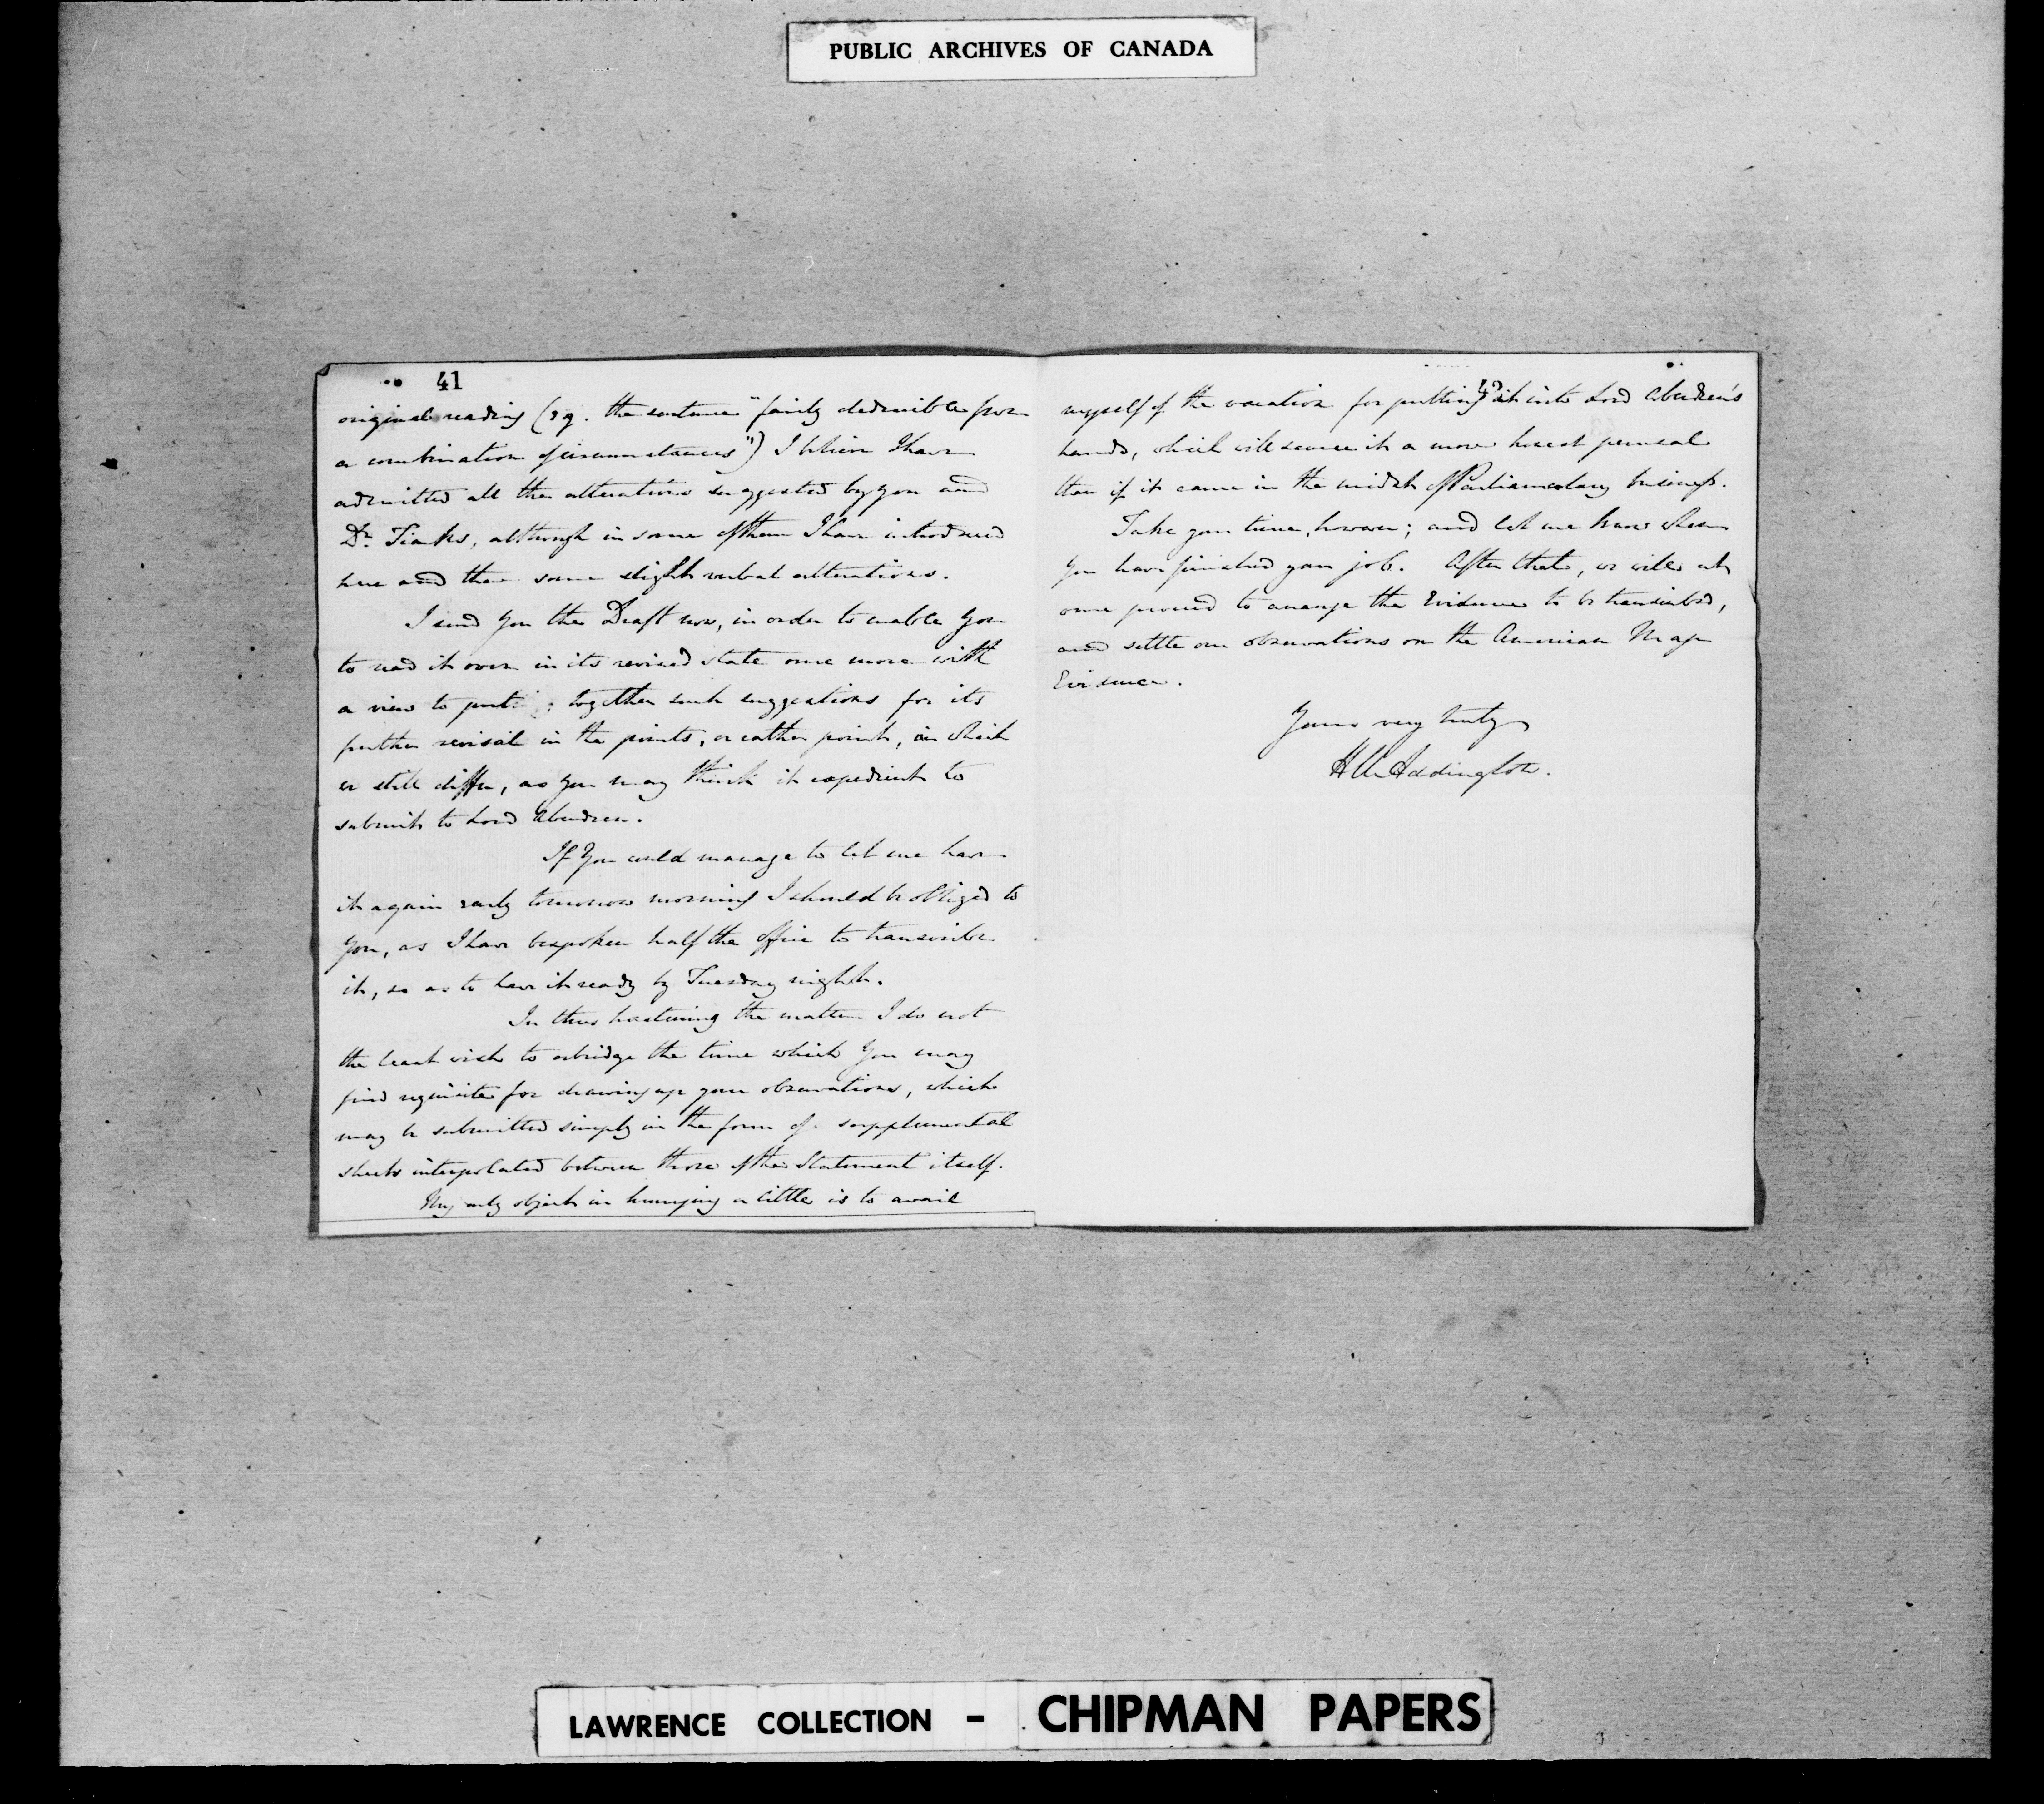 PUBLIC ARCHIVES OF CANADA
41
original reading (e.g. the sentence "fairly deducible from
a combination of circumstances") I believe I have
admitted all the alterations suggested by you and
Dr. Tiarks, although in some of them I have introduced
here and there some slight verbal alterations.
I send you the Draft now, in order to enable you
to read it over in its revised state once more with
a view to putting together such suggestions for its
further revisal in the points, or rather point, in which
we still differ, as you may think it expedient to
submit to Lord Aberdeen.
If you could manage to let me have
it again early tomorrow morning I should be obliged to
you, as I have bespoken half the office to transcribe
it, so as to have it ready by Tuesday night.
In thus hastening the matter I do not
the least wish to abridge the time which you may
find requisite for drawing up your observations, which
may be submitted simply in the form of supplemental
sheets interpolated between those of the Statement itself.
My only object in hurrying a little is to avail
42
myself of the vacation for putting it into Lord Aberdeen's
hands, which will secure it a more perusal
than if it came in the midst of Parliamentary business.
Take your time, however; and let me know when
you have finished your job. After that, we will at
once proceed to arrange the Evidence to be transcribed,
and settle our observations on the American Map
Evidence.
Yours very truly
H U Addington.
LAWRENCE COLLECTION - CHIPMAN PAPERS